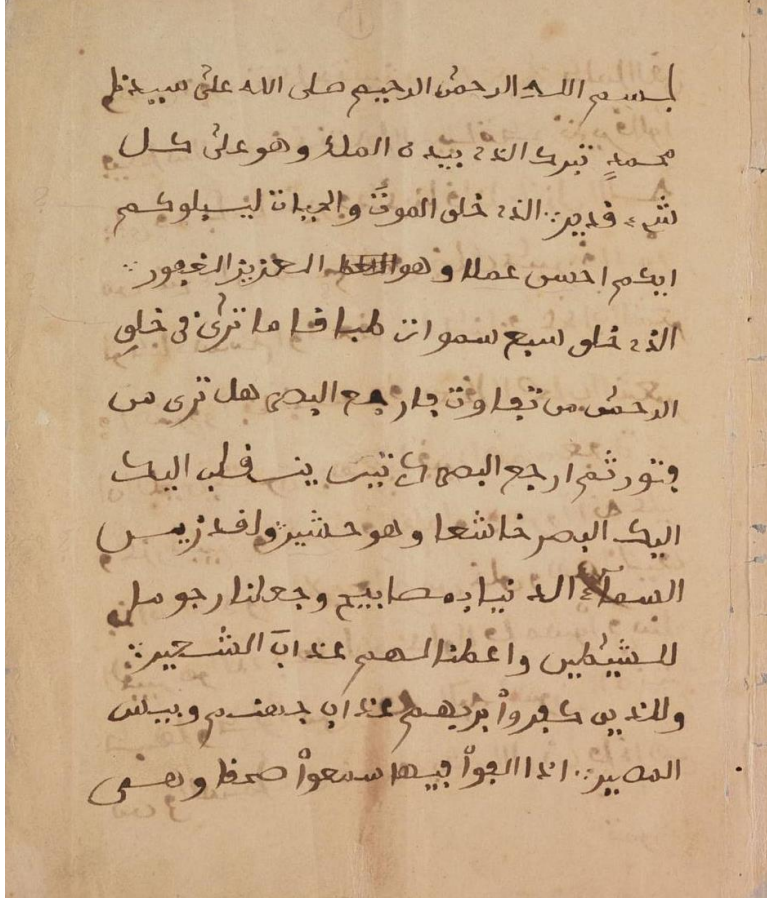 بسم الله الرحمن الرحيم صلى الله على سيدنا
محمدٍ تبرك الذي بيده الملك وهو على كل
شيء قدير الذي خلق الموت والحيات ليسبلوكم
ايكم احسن عملا وهو العزيز الغفور
الذي خلق سبع سموات طباقا ما ترى في خلق
الرحمن من تفاوت فارجع البصر هل ترى من
فتور ثم ارجع البصر كرتين ينقلب اليك
اليك البصر خاشعا وهو حشير ولقد زين
السماء الدنيا بمصابيح وجعلنا رجوما
للشيطين واعطنا لهم عذاب الشعير
وللذين كفروا بربهم عذاب جهنم وبيس
المصير اذا القوا فيها سمعوا صحقا وهي